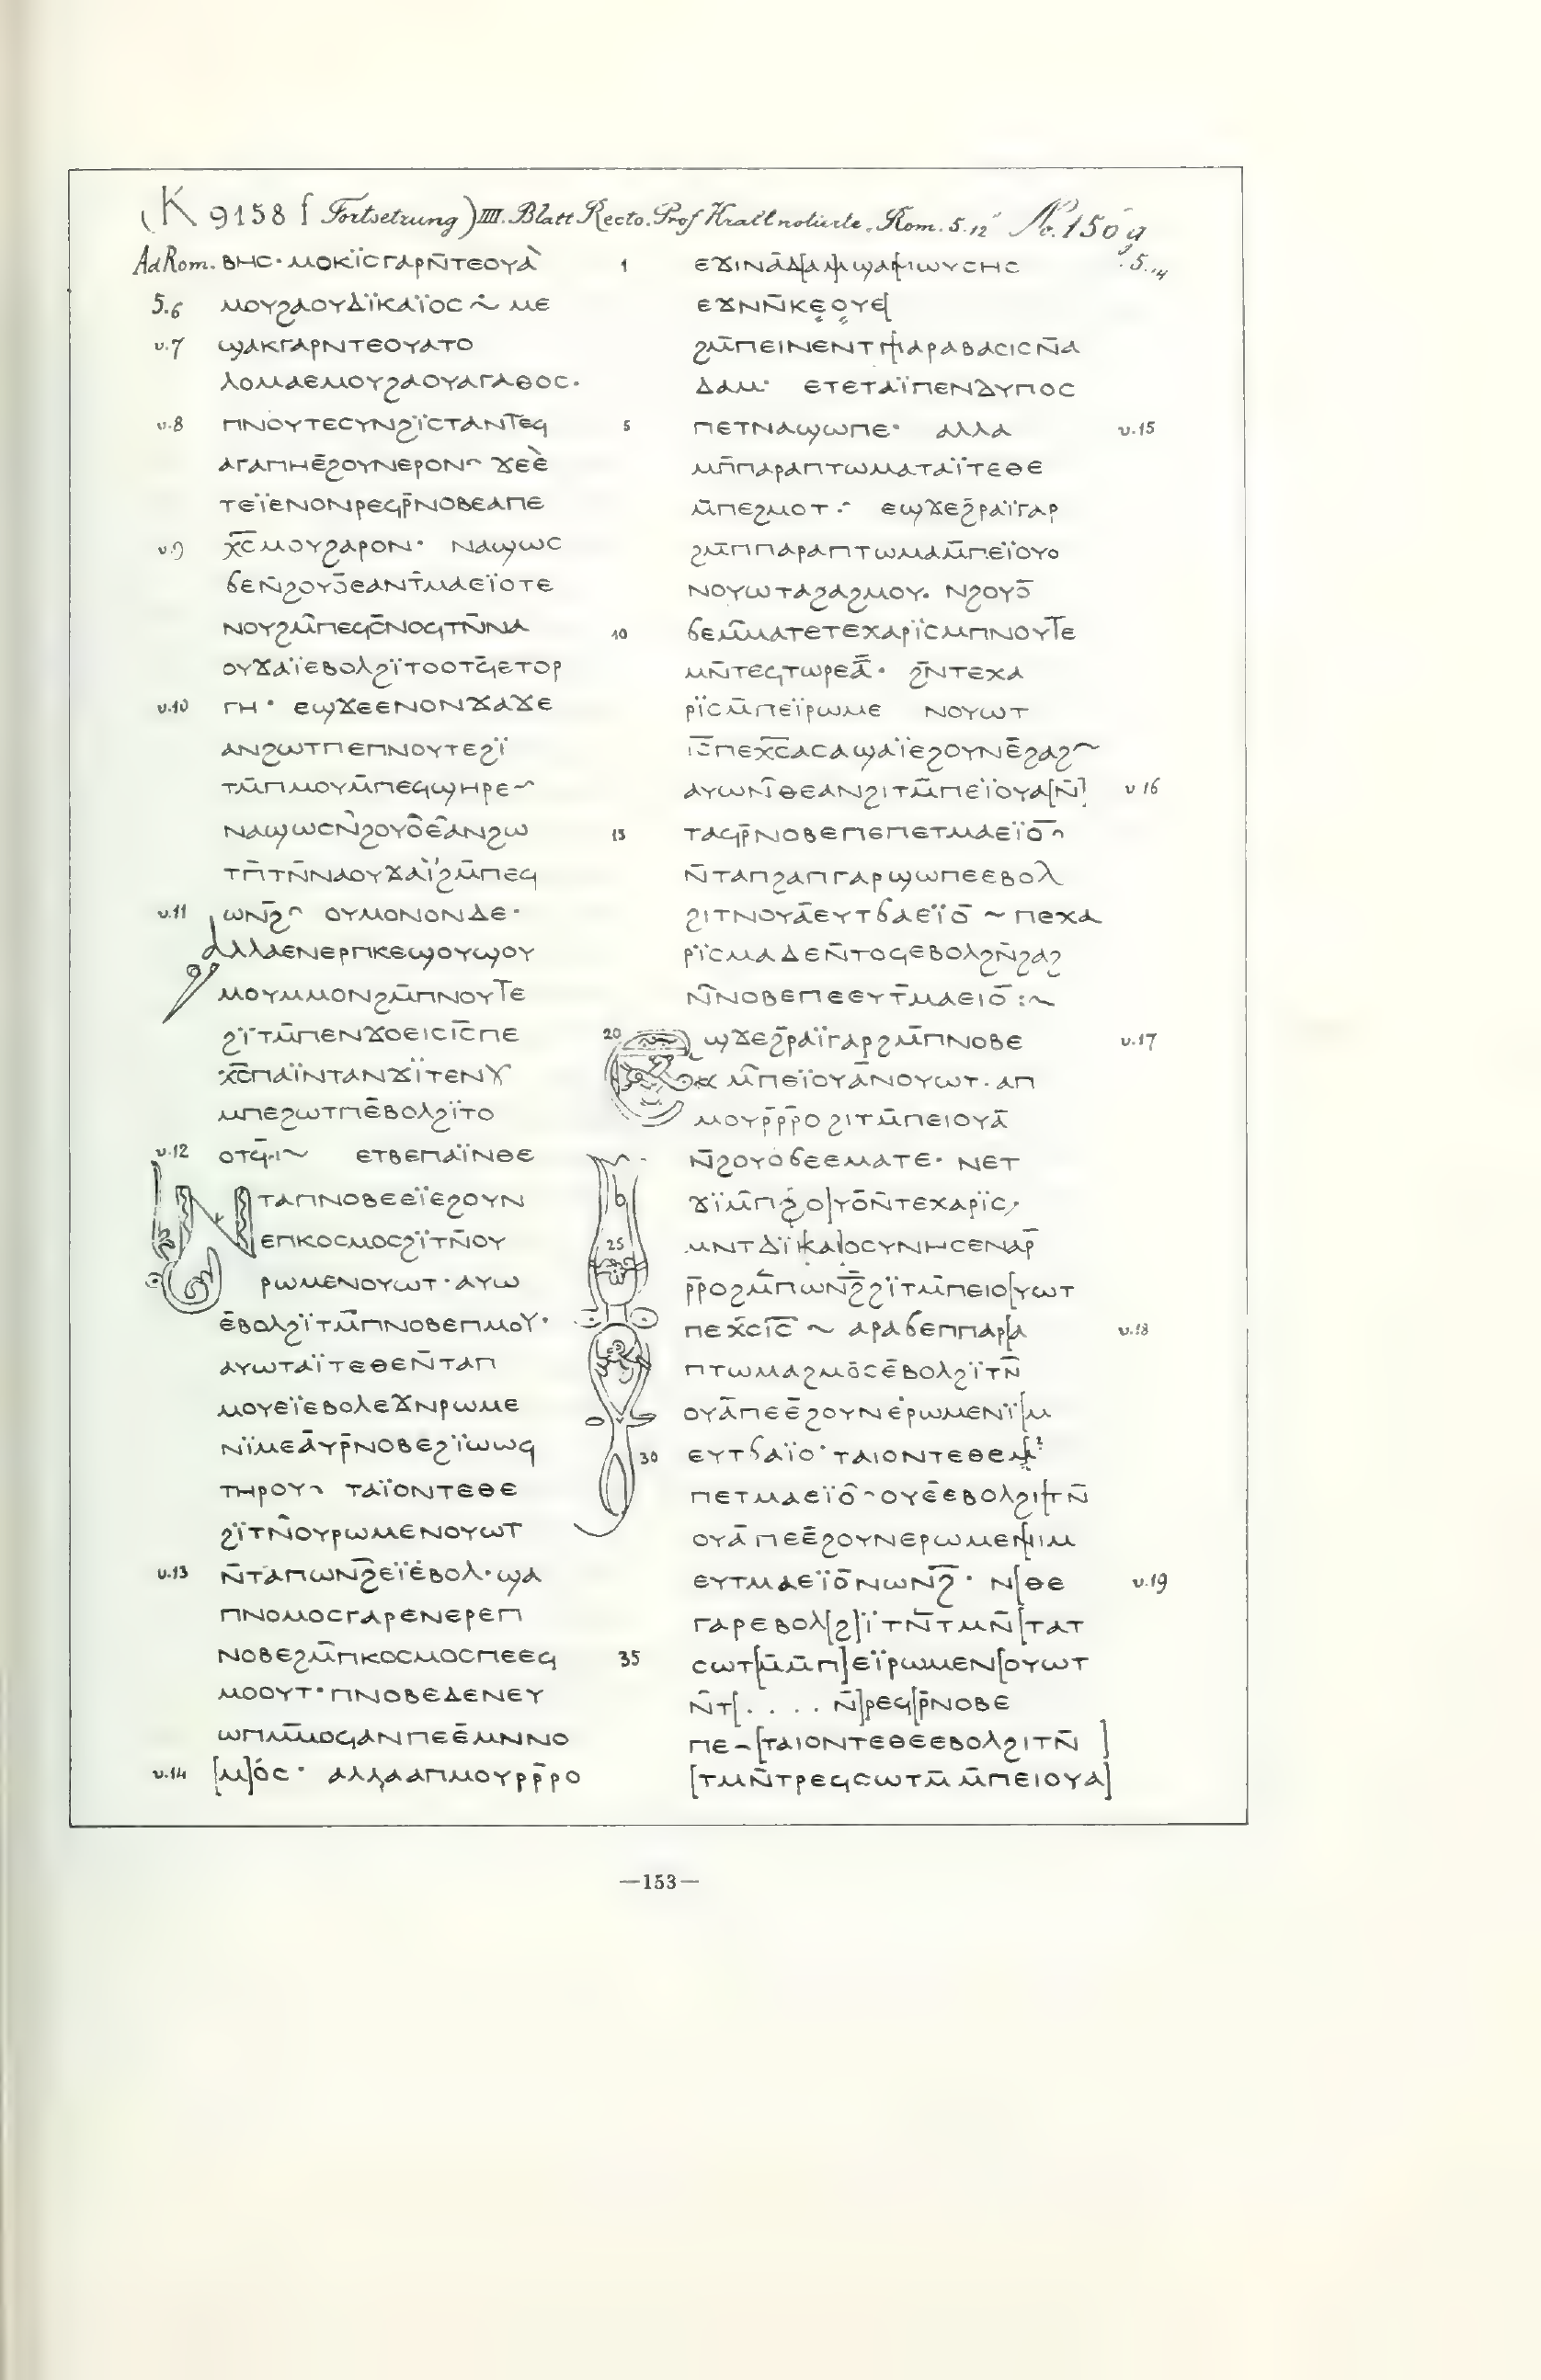 (K 9158 f Fortsetzung) IIII. Blatt Recto. Prof Krall notierte „Rom. 5.12" No. 150 g
Ad Rom. ⲃⲏⲥ· ⲙⲟⲕⲓ̈ⲥⲅⲁⲣⲛ̄ⲧⲉⲟⲩⲁ̀
5.6 ⲙⲟⲩϩⲁⲟⲩⲇⲓ̈ⲕⲁⲓ̈ⲟⲥ ⲙⲉ
v.7 ϣⲁⲕⲅⲁⲣⲛⲧⲉⲟⲩⲁⲧⲟ
ⲗⲟⲙⲁⲉⲙⲟⲩϩⲁⲟⲩⲁⲅⲁⲑⲟⲥ·
v.8 ⲡⲛⲟⲩⲧⲉⲥⲩⲛϩⲓ̈ⲥⲧⲁⲛ̄ⲧⲉϥ
ⲁⲅⲁⲡⲏⲉ̄ϩⲟⲩⲛⲉⲣⲟⲛ ϫⲉⲉ̀
ⲧⲉⲓ̈ⲉⲛⲟⲛⲣⲉϥⲣ̄ⲛⲟⲃⲉⲁⲡⲉ
v.9 ⲭ̅ⲥ̅ⲙⲟⲩϩⲁⲣⲟⲛ· ⲛⲁϣⲱⲥ
ϭⲉⲛ̄ϩⲟⲩⲟ̄ⲉⲁⲛⲧ̄ⲙⲁⲉⲓ̈ⲟⲧⲉ
ⲛⲟⲩϩⲙ̄ⲡⲉϥⲥ̄ⲛⲟϥⲧⲛ̄ⲛⲁ
ⲟⲩϫⲁⲓ̈ⲉⲃⲟⲗϩⲓ̈ⲧⲟⲟⲧϥ̄ⲉⲧⲟⲣ
v.10 ⲅⲏ· ⲉϣϫⲉⲉⲛⲟⲛϫⲁϫⲉ
ⲁⲛϩⲱⲧⲡⲉⲡⲛⲟⲩⲧⲉϩⲓ̈
ⲧⲙ̄ⲡⲙⲟⲩⲙ̄ⲡⲉϥϣⲏⲣⲉ~
ⲛⲁϣⲱⲥⲛ̀ϩⲟⲩⲟ̂ⲉ̂ⲁⲛϩⲱ
ⲧⲡ̄ⲧⲛ̄ⲛⲁⲟⲩϫⲁⲓ̈ϩⲙ̄ⲡⲉϥ
v.11 ⲱⲛϩ̄ ⲟⲩⲙⲟⲛⲟⲛⲇⲉ·
ⲁⲗⲗⲁⲉⲛⲉⲣⲡⲕⲉϣⲟⲩϣⲟⲩ
ⲙⲟⲩⲙⲙⲟⲛϩⲙ̄ⲡⲛⲟⲩⲧⲉ
ϩⲓ̈ⲧⲙ̄ⲡⲉⲛϫⲟⲉⲓⲥⲓ̅ⲥ̅ⲡⲉ
ⲭ̅ⲥ̅ⲡⲁⲓ̈ⲛⲧⲁⲛϫⲓ̈ⲧⲉⲛⲩ
ⲙⲡⲉϩⲱⲧⲡⲉ̄ⲃⲟⲗϩⲓ̈ⲧⲟ
v.12 ⲟⲧϥ̄·~ ⲉⲧⲃⲉⲡⲁⲓ̈ⲛⲑⲉ
ⲛⲧⲁⲡⲛⲟⲃⲉⲉⲓ̈ⲉϩⲟⲩⲛ
ⲉⲡⲕⲟⲥⲙⲟⲥϩⲓ̈ⲧⲛ̄ⲟⲩ
ⲣⲱⲙⲉⲛⲟⲩⲱⲧ· ⲁⲩⲱ
ⲉ̄ⲃⲟⲗϩⲓ̈ⲧⲙ̄ⲡⲛⲟⲃⲉⲡⲙⲟⲩ·
ⲁⲩⲱⲧⲁⲓ̈ⲧⲉⲑⲉⲛ̄ⲧⲁⲡ
ⲙⲟⲩⲉⲓ̈ⲉⲃⲟⲗⲉϫⲛⲣⲱⲙⲉ
ⲛⲓ̈ⲙⲉⲁ̄ⲩⲣ̄ⲛⲟⲃⲉϩⲓ̈ⲱⲱϥ
ⲧⲏⲣⲟⲩ ⲧⲁⲓ̈ⲟⲛⲧⲉⲑⲉ
ϩⲓ̈ⲧⲛ̄ⲟⲩⲣⲱⲙⲉⲛⲟⲩⲱⲧ
v.13 ⲛ̄ⲧⲁⲡⲱⲛϩ̄ⲉⲓ̈ⲉ̇ⲃⲟⲗ· ϣⲁ
ⲡⲛⲟⲙⲟⲥⲅⲁⲣⲉⲛⲉⲣⲉⲡ
ⲛⲟⲃⲉϩⲙ̄ⲡⲕⲟⲥⲙⲟⲥⲡⲉⲉϥ
ⲙⲟⲟⲩⲧ· ⲡⲛⲟⲃⲉⲇⲉⲛⲉⲩ
ⲱⲡⲙ̄ⲙⲟϥⲁⲛⲡⲉⲉ̄ⲙⲛⲛⲟ
v.14 [ⲙ]ⲟ́ⲥ· ⲁⲗⲗⲁⲁⲡⲙⲟⲩⲣⲣ̄ⲣⲟ
1 ⲉϫⲓⲛⲁ̄ⲇ[ⲁⲙ]ϣⲁ[ⲙⲱⲩⲥⲏⲥ 5.14
ⲉϫⲛⲛ̄ⲕⲉⲟⲩⲉ[
ϩⲙ̄ⲡⲉⲓⲛⲉⲛⲧ[ⲡⲁⲣⲁⲃⲁⲥⲓⲥⲛ̄ⲁ
ⲇⲁⲙ· ⲉⲧⲉⲧⲁⲓ̈ⲡⲉⲛⲇⲩⲡⲟⲥ
5 ⲡⲉⲧⲛⲁϣⲱⲡⲉ· ⲁⲗⲗⲁ v.15
ⲙⲡ̄ⲡⲁⲣⲁⲡⲧⲱⲙⲁⲧⲁⲓ̈ⲧⲉⲑⲉ
ⲙ̄ⲡⲉϩⲙⲟⲧ ⲉϣϫⲉϩ̄ⲣⲁⲓ̈ⲅⲁⲣ
ϩⲙ̄ⲡⲡⲁⲣⲁⲡⲧⲱⲙⲁⲙ̄ⲡⲉⲓ̈ⲟⲩⲟ
ⲛⲟⲩⲱⲧⲁϩⲁϩⲙⲟⲩ. ⲛϩⲟⲩⲟ̄
10 ϭⲉⲙ̄ⲙⲁⲧⲉⲧⲉⲭⲁⲣⲓ̈ⲥⲙⲡⲛⲟⲩⲧⲉ
ⲙⲛ̄ⲧⲉϥⲧⲱⲣⲉⲁ̄· ϩⲛ̄ⲧⲉⲭⲁ
ⲣⲓ̈ⲥⲙ̄ⲡⲉⲓ̈ⲣⲱⲙⲉ ⲛⲟⲩⲱⲧ
ⲓ̅ⲥ̅ⲡⲉⲭ̅ⲥ̅ⲁⲥⲁϣⲁⲓ̈ⲉϩⲟⲩⲛⲉ̄ϩⲁϩ~
ⲁⲩⲱⲛ̄ⲑⲉⲁⲛϩⲓⲧⲙ̄ⲡⲉⲓ̈ⲟⲩⲁ[ⲛ̄] v 16
15 ⲧⲁϥⲣ̄ⲛⲟⲃⲉⲡⲉⲡⲉⲧⲙⲁⲉⲓ̈ⲟ̄
ⲛ̄ⲧⲁⲡϩⲁⲡⲅⲁⲣϣⲱⲡⲉⲉⲃⲟⲗ
ϩⲓⲧⲛⲟⲩⲁ̄ⲉⲩⲧϭⲁⲉⲓ̈ⲟ̄ ~ ⲡⲉⲭⲁ
ⲣⲓ̈ⲥⲙⲁⲇⲉⲛ̄ⲧⲟϥⲉⲃⲟⲗϩⲛ̄ϩⲁϩ
ⲛ̄ⲛⲟⲃⲉⲡⲉⲉⲩⲧ̄ⲙⲁⲉⲓⲟ̄ :~
20 ⲉϣϫⲉϩ̄ⲣⲁⲓ̈ⲅⲁⲣϩⲙ̄ⲡⲛⲟⲃⲉ v.17
ⲙ̄ⲡⲉⲓ̈ⲟⲩⲁ̄ⲛⲟⲩⲱⲧ· ⲁⲡ
ⲙⲟⲩⲣ̄ⲣ̄ⲣⲟϩⲓⲧⲙ̄ⲡⲉⲓⲟⲩⲁ̄
ⲛ̄ϩⲟⲩⲟϭⲉⲉⲙⲁⲧⲉ· ⲛⲉⲧ
ϫⲓ̈ⲙ̄ⲡϩⲟ]ⲩⲟ̄ⲛ̄ⲧⲉⲭⲁⲣⲓ̈ⲥ,·
25 ⲙⲛⲧⲇⲓ̈[ⲕⲁⲓ]ⲟⲥⲩⲛⲏⲥⲉⲛⲁⲣ̄
ⲣ̄ⲣⲟϩⲙ̄ⲡⲱⲛϩ̄ϩⲓ̈ⲧⲙ̄ⲡⲉⲓⲟ[ⲩⲱⲧ
ⲡⲉⲭ̄ⲥⲓ̅ⲥ̅ ~ ⲁⲣⲁϭⲉⲡⲡⲁⲣ[ⲁ v.18
ⲡⲧⲱⲙⲁϩⲙⲟ̄ⲥⲉ̄ⲃⲟⲗϩⲓ̈ⲧⲛ̄
ⲟⲩⲁ̄ⲡⲉⲉ̄ϩⲟⲩⲛⲉ̇ⲣⲱⲙⲉⲛⲓ̈[ⲙ
30 ⲉⲩⲧϭⲁⲓ̈ⲟ· ⲧⲁⲓⲟⲛⲧⲉⲑⲉⲙ̣?
ⲡⲉⲧⲙⲁⲉⲓ̈ⲟ̂ ⲟⲩⲉ̄ⲉⲃⲟⲗϩⲓ[ⲧⲛ̄
ⲟⲩⲁ̄ⲡⲉⲉ̄ϩⲟⲩⲛⲉⲣⲱⲙⲉ[ⲛⲓⲙ
ⲉⲩⲧⲙⲁⲉⲓ̈ⲟ̄ⲛⲱⲛϩ̄· ⲛ[ⲑⲉ v.19
ⲅⲁⲣⲉⲃⲟⲗ[ϩ]ⲓ̈ⲧⲛ̄ⲧⲙⲛ̄[ⲧⲁⲧ
35 ⲥⲱⲧ[ⲙ̄ⲙ̄ⲡ]ⲉⲓ̈ⲣⲱⲙⲉⲛ[ⲟⲩⲱⲧ
ⲛ̄ⲧ[. . . . ⲛ̄]ⲣⲉϥ[ⲣ̄ⲛⲟⲃⲉ
ⲡⲉ–[ⲧⲁⲓⲟⲛⲧⲉⲑⲉⲉⲃⲟⲗϩⲓⲧⲛ̄ ]
[ⲧⲙⲛ̄ⲧⲣⲉϥⲥⲱⲧⲙ̄ ⲙ̄ⲡⲉⲓⲟⲩⲁ]
—153—